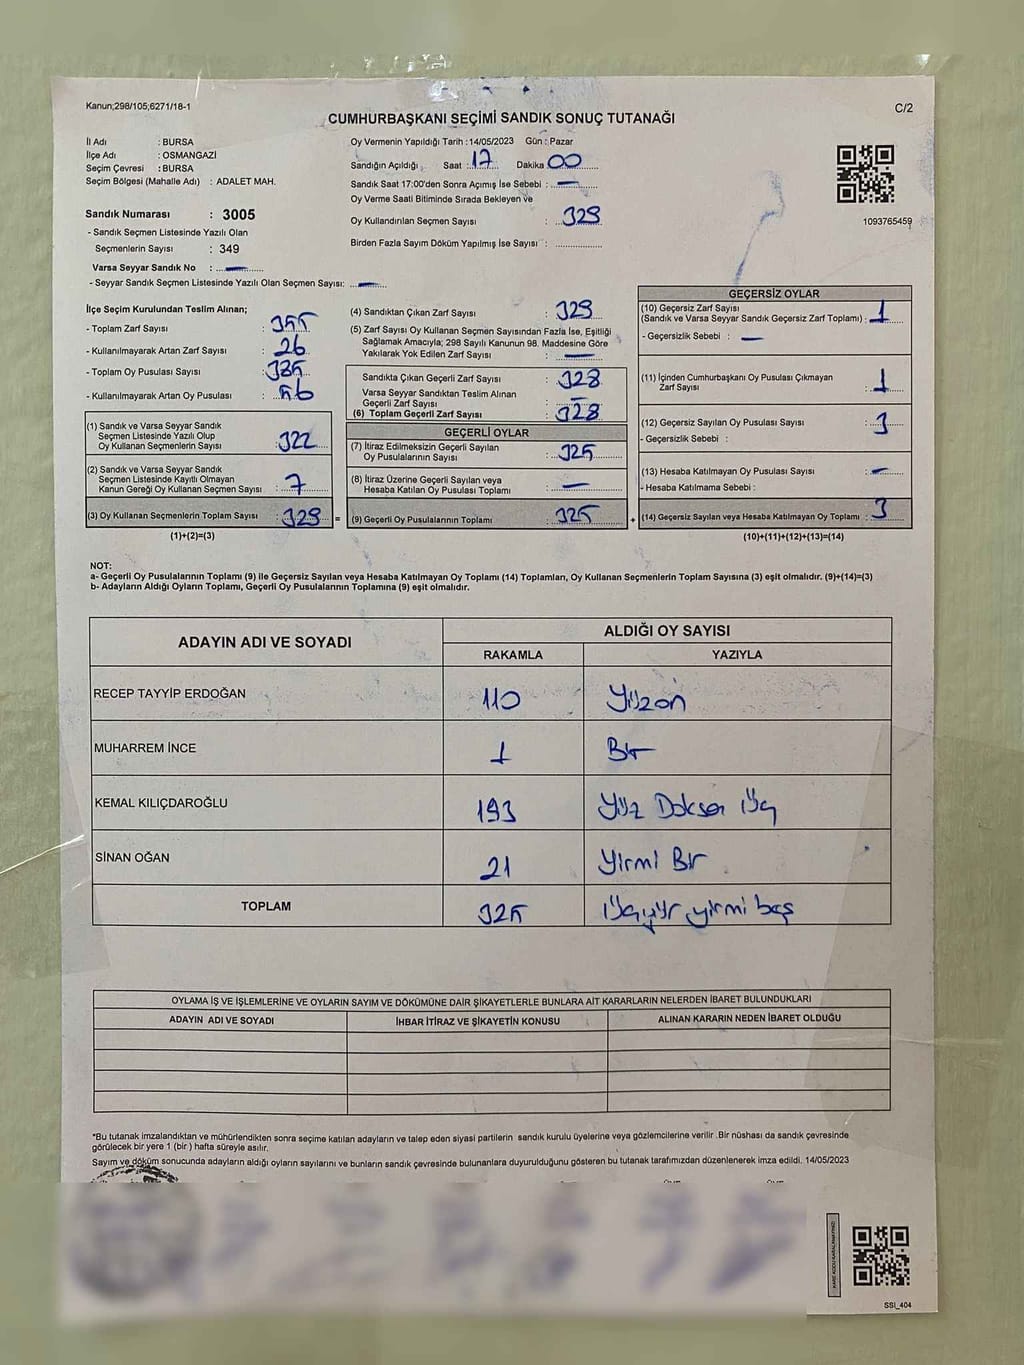 Kanun;298/105;6271/18-1
C/2
CUMHURBAŞKANI SEÇİMİ SANDIK SONUÇ TUTANAĞI
İl Adı : BURSA
İlçe Adı : OSMANGAZİ
Seçim Çevresi : BURSA
Seçim Bölgesi (Mahalle Adı) : ADALET MAH.
Sandık Numarası : 3005
- Sandık Seçmen Listesinde Yazılı Olan
Seçmenlerin Sayısı : 349
Varsa Seyyar Sandık No : —
- Seyyar Sandık Seçmen Listesinde Yazılı Olan Seçmen Sayısı: —
Oy Vermenin Yapıldığı Tarih :14/05/2023 Gün : Pazar
Sandığın Açıldığı Saat : 17 Dakika 00
Sandık Saat 17:00'den Sonra Açımış İse Sebebi : —
Oy Verme Saati Bitiminde Sırada Bekleyen ve
Oy Kullandırılan Seçmen Sayısı : 329
Birden Fazla Sayım Döküm Yapılmış İse Sayısı :
1093765459
İlçe Seçim Kurulundan Teslim Alınan;
- Toplam Zarf Sayısı : 355
- Kullanılmayarak Artan Zarf Sayısı : 26
- Toplam Oy Pusulası Sayısı : 385
- Kullanılmayarak Artan Oy Pusulası : 56
(1) Sandık ve Varsa Seyyar Sandık
Seçmen Listesinde Yazılı Olup
Oy Kullanan Seçmenlerin Sayısı : 322
(2) Sandık ve Varsa Seyyar Sandık
Seçmen Listesinde Kayıtlı Olmayan
Kanun Gereği Oy Kullanan Seçmen Sayısı : 7
(3) Oy Kullanan Seçmenlerin Toplam Sayısı : 329 =
(1)+(2)=(3)
(4) Sandıktan Çıkan Zarf Sayısı : 329
(5) Zarf Sayısı Oy Kullanan Seçmen Sayısından Fazla İse, Eşitliği
Sağlamak Amacıyla; 298 Sayılı Kanunun 98. Maddesine Göre
Yakılarak Yok Edilen Zarf Sayısı : —
Sandıkta Çıkan Geçerli Zarf Sayısı : 328
Varsa Seyyar Sandıktan Teslim Alınan
Geçerli Zarf Sayısı : —
(6) Toplam Geçerli Zarf Sayısı : 328
GEÇERLİ OYLAR
(7) İtiraz Edilmeksizin Geçerli Sayılan
Oy Pusulalarının Sayısı : 325
(8) İtiraz Üzerine Geçerli Sayılan veya
Hesaba Katılan Oy Pusulası Toplamı : —
(9) Geçerli Oy Pusulalarının Toplamı : 325 +
GEÇERSİZ OYLAR
(10) Geçersiz Zarf Sayısı
(Sandık ve Varsa Seyyar Sandık Geçersiz Zarf Toplamı) : 1
- Geçersizlik Sebebi : —
(11) İçinden Cumhurbaşkanı Oy Pusulası Çıkmayan
Zarf Sayısı : 1
(12) Geçersiz Sayılan Oy Pusulası Sayısı : 3
- Geçersizlik Sebebi :
(13) Hesaba Katılmayan Oy Pusulası Sayısı : —
- Hesaba Katılmama Sebebi :
(14) Geçersiz Sayılan veya Hesaba Katılmayan Oy Toplamı : 3
(10)+(11)+(12)+(13)=(14)
NOT:
a- Geçerli Oy Pusulalarının Toplamı (9) ile Geçersiz Sayılan veya Hesaba Katılmayan Oy Toplamı (14) Toplamları, Oy Kullanan Seçmenlerin Toplam Sayısına (3) eşit olmalıdır. (9)+(14)=(3)
b- Adayların Aldığı Oyların Toplamı, Geçerli Oy Pusulalarının Toplamına (9) eşit olmalıdır.
ADAYIN ADI VE SOYADI ALDIĞI OY SAYISI
RAKAMLA YAZIYLA
RECEP TAYYİP ERDOĞAN 110 Yüzon
MUHARREM İNCE 1 Bir
KEMAL KILIÇDAROĞLU 193 Yüz Doksan Üç
SİNAN OĞAN 21 Yirmi Bir
TOPLAM 325 Üçyüz yirmi beş
OYLAMA İŞ VE İŞLEMLERİNE VE OYLARIN SAYIM VE DÖKÜMÜNE DAİR ŞİKAYETLERLE BUNLARA AİT KARARLARIN NELERDEN İBARET BULUNDUKLARI
ADAYIN ADI VE SOYADI İHBAR İTİRAZ VE ŞİKAYETİN KONUSU ALINAN KARARIN NEDEN İBARET OLDUĞU
*Bu tutanak imzalandıktan ve mühürlendikten sonra seçime katılan adayların ve talep eden siyasi partilerin sandık kurulu üyelerine veya gözlemcilerine verilir .Bir nüshası da sandık çevresinde
görülecek bir yere 1 (bir ) hafta süreyle asılır.
Sayım ve döküm sonucunda adayların aldığı oyların sayılarını ve bunların sandık çevresinde bulunanlara duyurulduğunu gösteren bu tutanak tarafımızdan düzenlenerek imza edildi. 14/05/2023
SSI_404